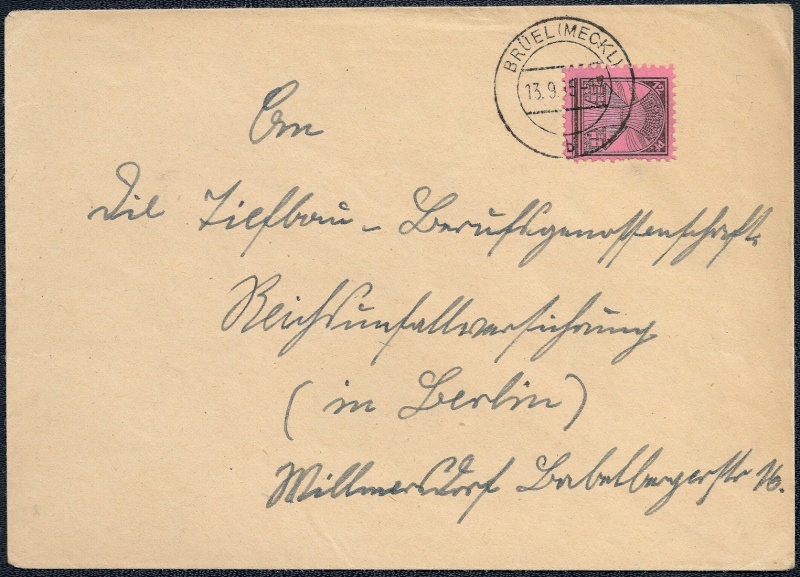 BRÜEL (MECKL)
13.9.35
b
An
Die Tiefbau-Berufsgenossenschaft.
Reichsunfallversichrung
(in Berlin)
Willmersdorf Babelbergerstr 16.